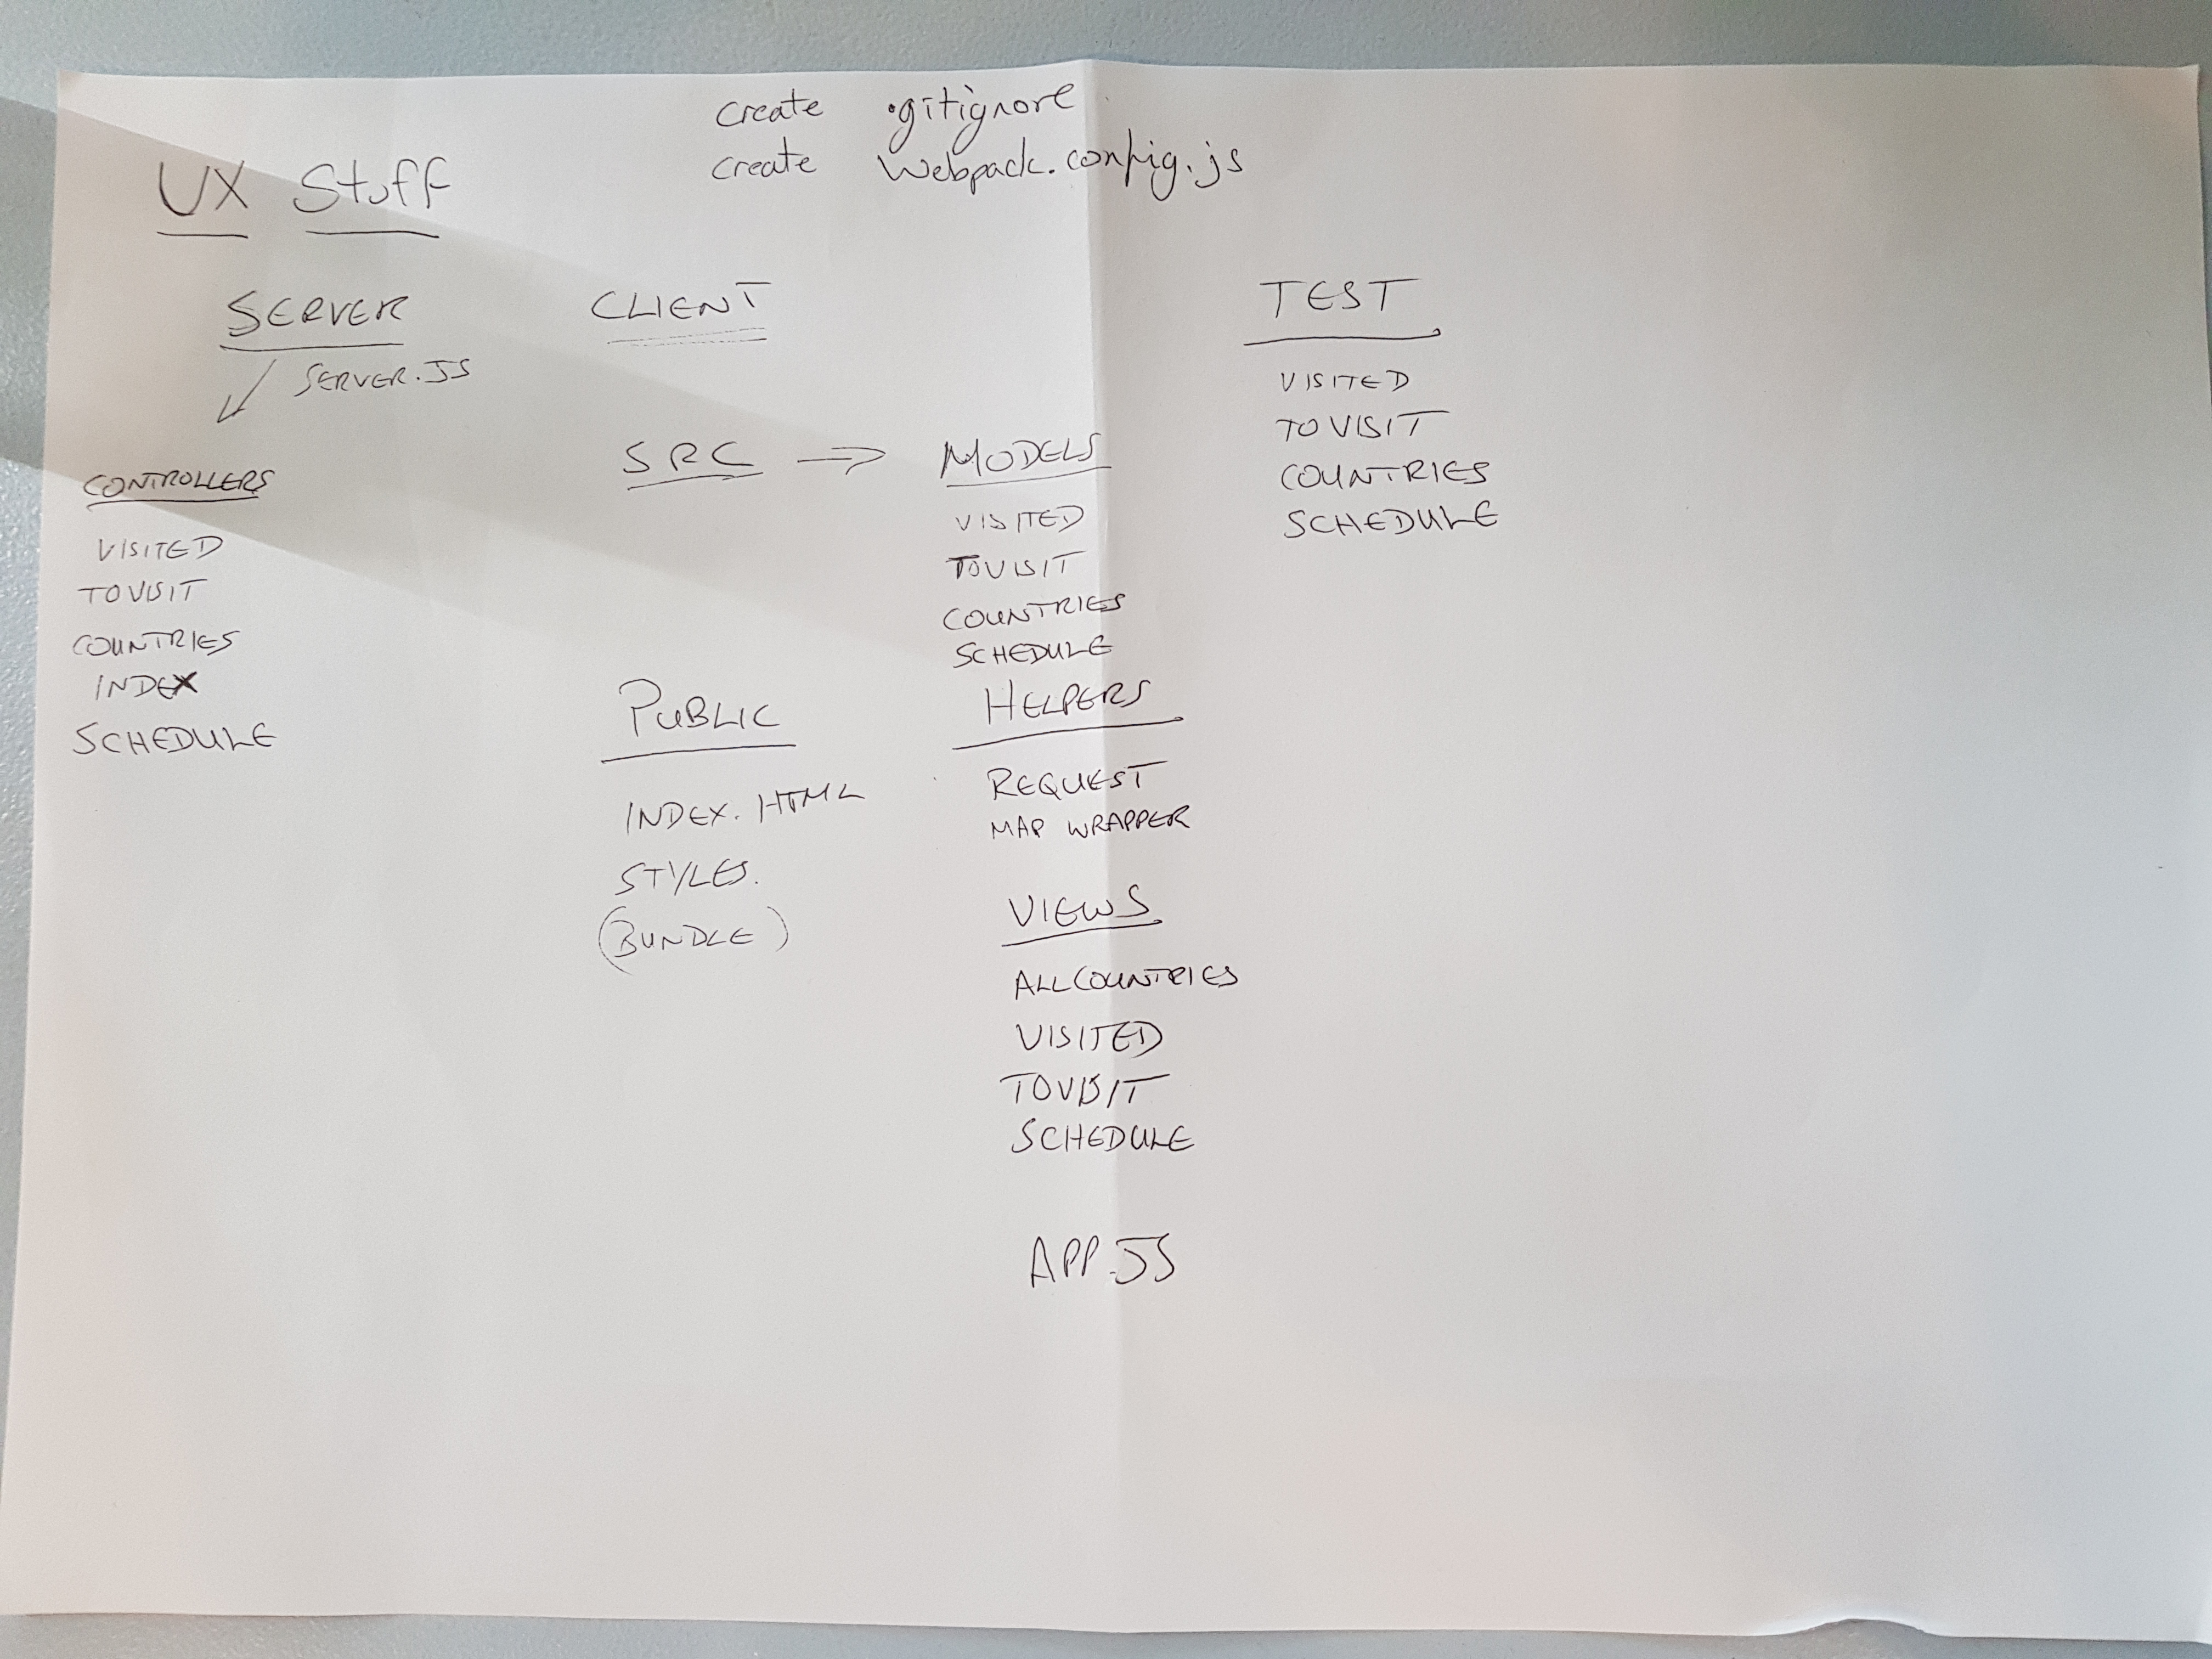 create .gitignore
create Webpack.config.js
UX Stuff
SERVER
SERVER.JS
CONTROLLERS
VISITED
TOVISIT
COUNTRIES
INDEX
SCHEDULE
CLIENT
SRC → MODELS
VISITED
TOVISIT
COUNTRIES
SCHEDULE
HELPERS
REQUEST
MAP WRAPPER
VIEWS
ALLCOUNTRIES
VISITED
TOVISIT
SCHEDULE
APP.JS
PUBLIC
INDEX.HTML
STYLES.
(BUNDLE)
TEST
VISITED
TOVISIT
COUNTRIES
SCHEDULE